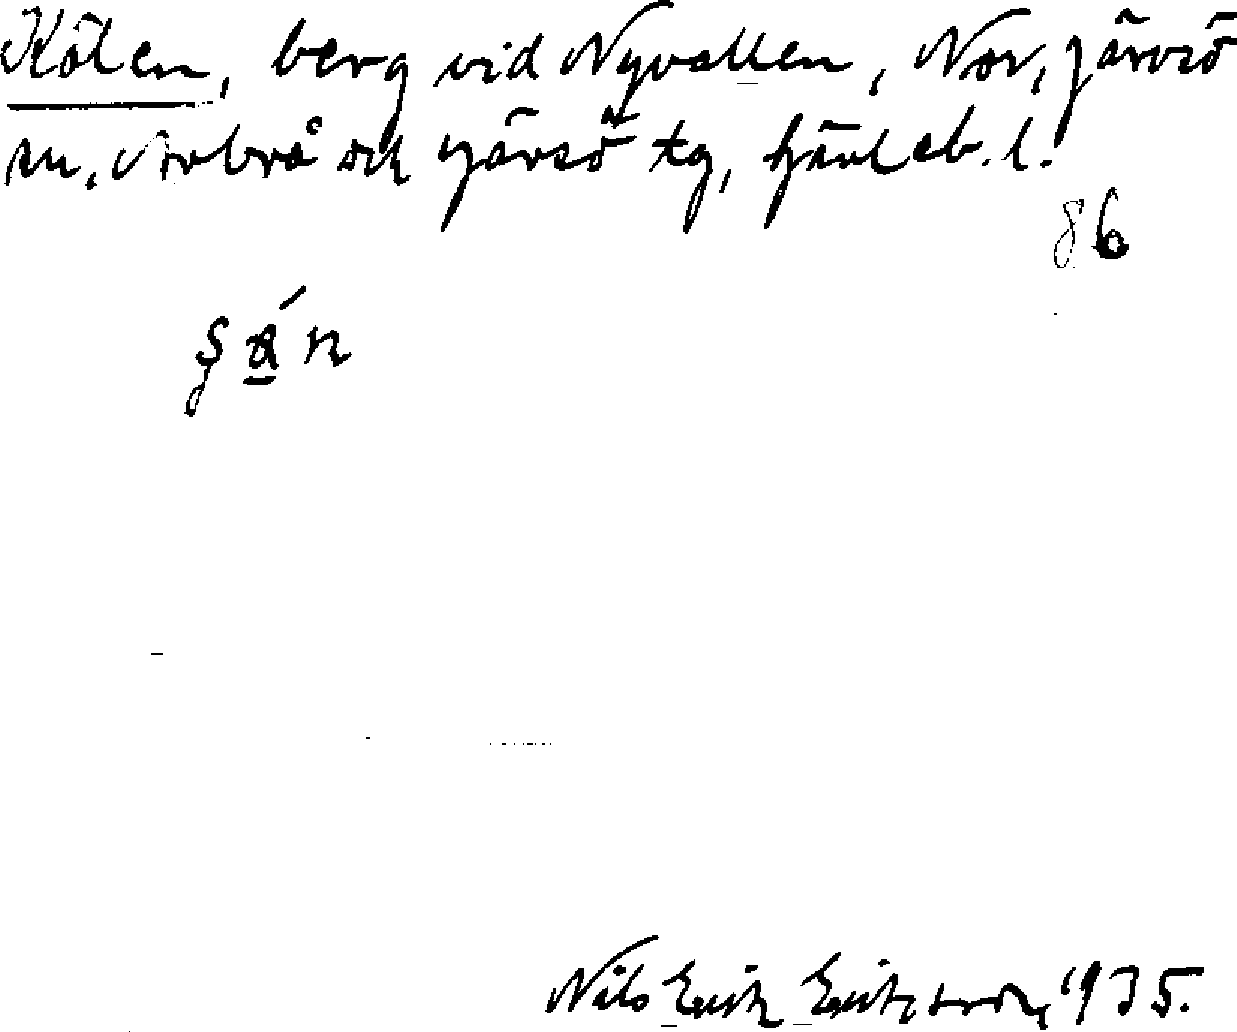 Kölen, berg vid Nyvallen, Nor, Järvsö
sn. Arbrå och Järvsö tg, Gävleb. l.
86
Nils Erik Eriksson, 1935.